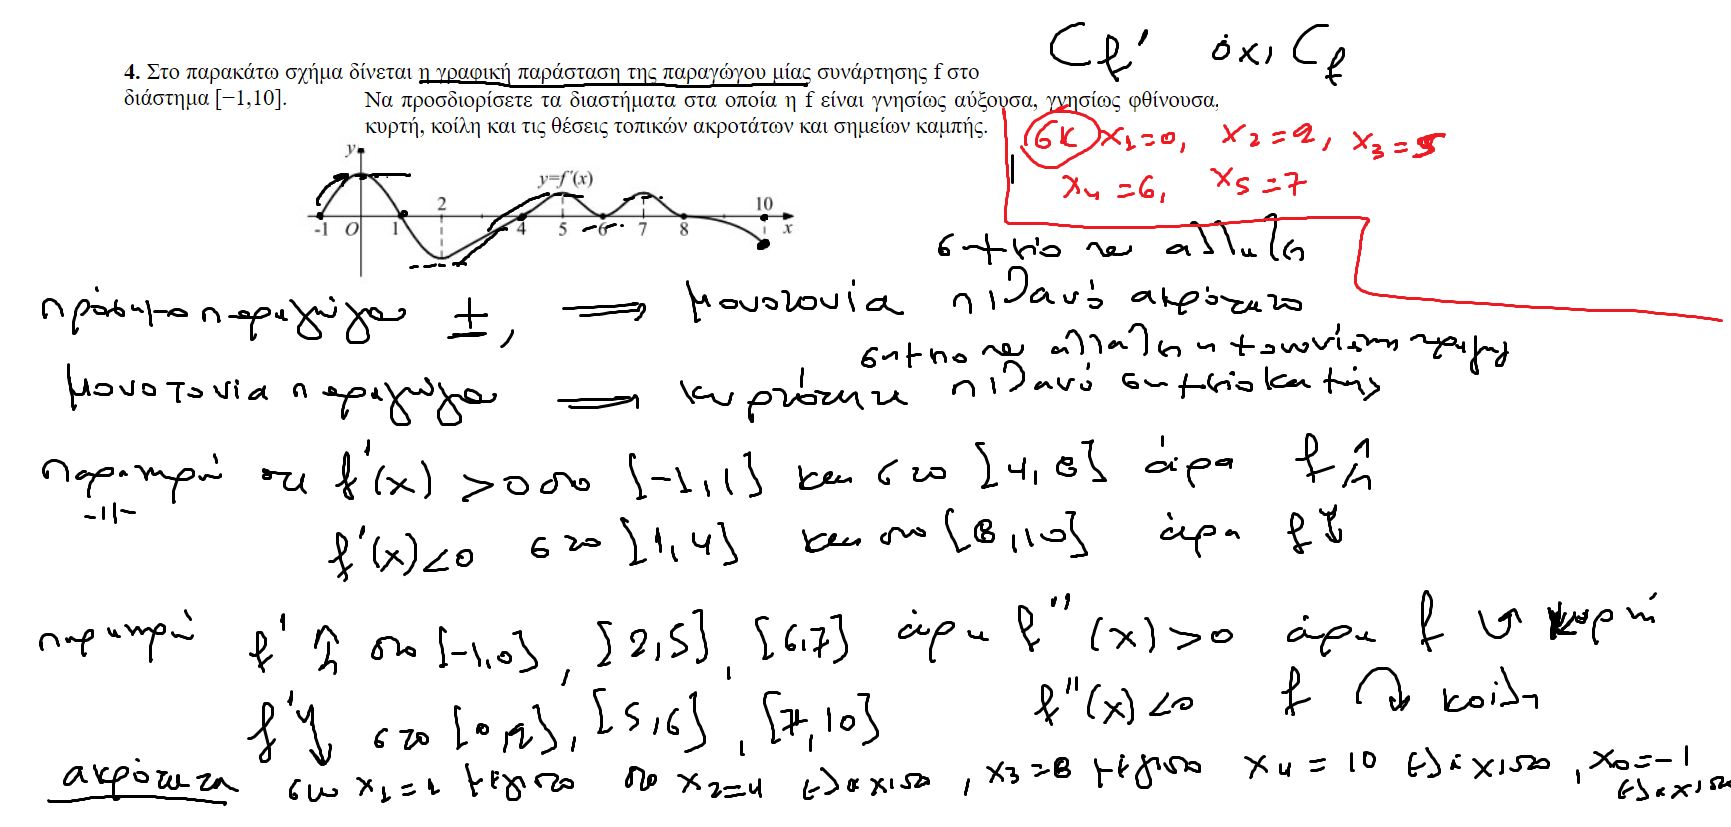 Cf' όχι Cf
4. Στο παρακάτω σχήμα δίνεται η γραφική παράσταση της παραγώγου μίας συνάρτησης f στο
διάστημα [−1,10]. Να προσδιορίσετε τα διαστήματα στα οποία η f είναι γνησίως αύξουσα, γνησίως φθίνουσα,
κυρτή, κοίλη και τις θέσεις τοπικών ακροτάτων και σημείων καμπής.
ΣΚ x₁=0, x₂=2, x₃=5
x₄=6, x₅=7
y
y=f'(x)
2 10
-1 O 1 4 5 6 7 8 x
σημείο που αλλάζει
πρόσημο παραγώγου ±, ⟹ μονοτονία πιθανό ακρότατο
σημείο που αλλάζει η μονοτονία της παραγώγου
μονοτονία παραγώγου ⟹ κυρτότητα πιθανό σημείο καμπής
παρατηρώ οτι f'(x) >0 στο [-1,1] και στο [4,8] άρα f ↑
-//- f'(x)<0 στο [1,4] και στο [8,10] άρα f ↓
παρατηρώ f' ↑ στο [-1,0], [2,5], [6,7] άρα f''(x)>0 άρα f κυρτή
f' ↓ στο [0,2], [5,6], [7,10] f''(x)<0 f κοίλη
ακρότατα στο x₁=1 μέγιστο στο x₂=4 ελάχιστο, x₃=8 μέγιστο x₄=10 ελάχιστο, x₀=-1
ελάχιστο